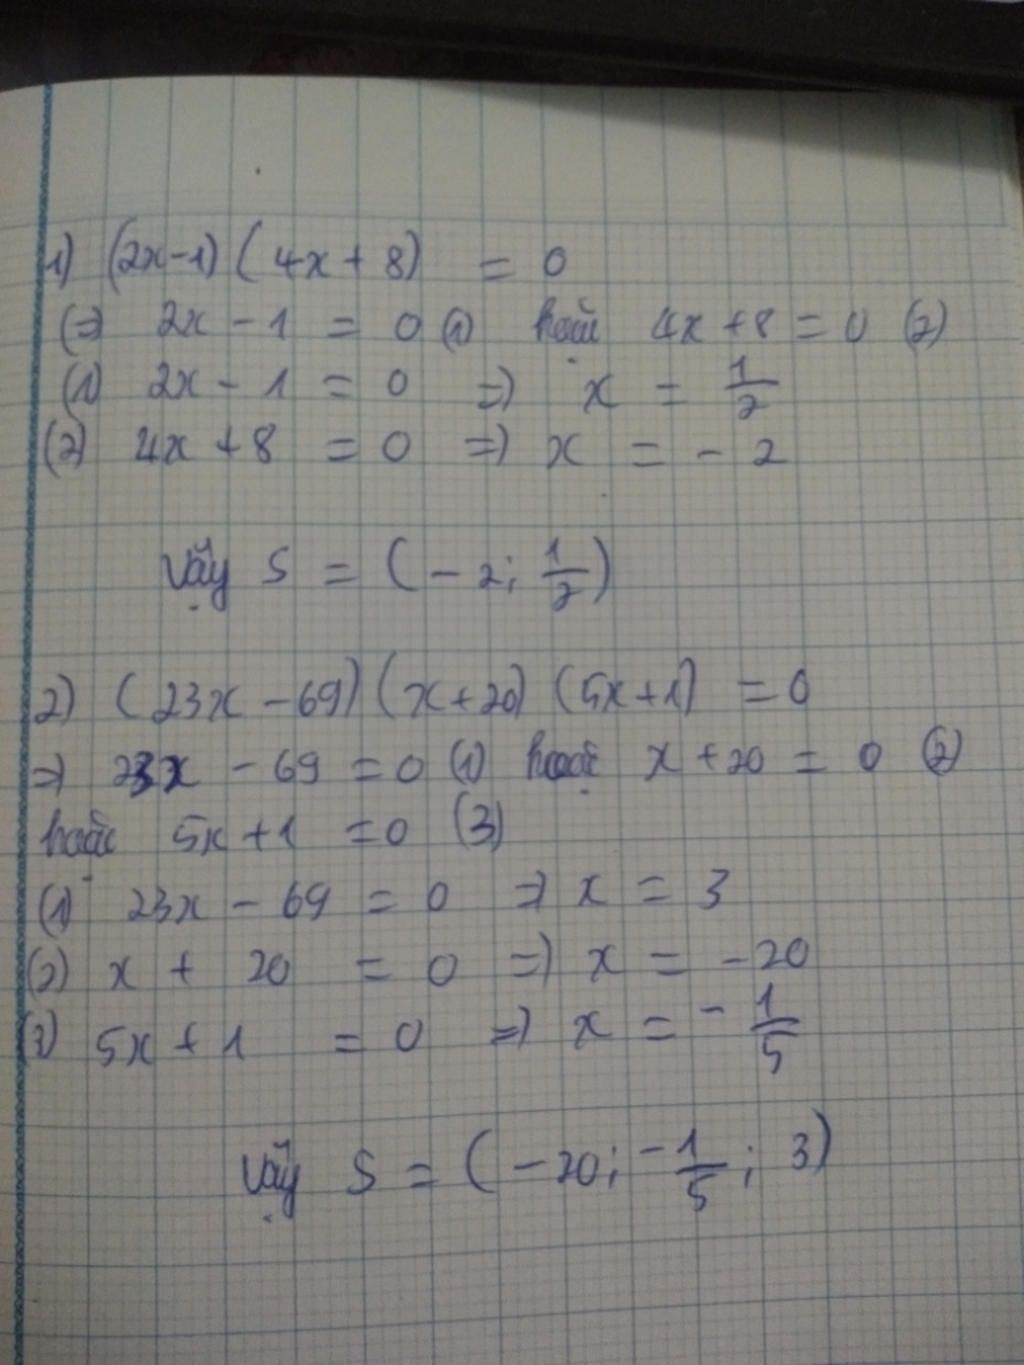 1) (2x-1)(4x+8) = 0
(=) 2x - 1 = 0 (1) hoặc 4x+8 = 0 (2)
(1) 2x - 1 = 0 =) x = 1/2
(2) 4x +8 = 0 =) x = - 2
Vậy S = (-2; 1/2)
2) (23x -69)(x+20)(5x+1) = 0
=) 23x - 69 = 0 (1) hoặc x + 20 = 0 (2)
hoặc 5x+1 = 0 (3)
(1) 23x - 69 = 0 =) x = 3
(2) x + 20 = 0 =) x = -20
(3) 5x + 1 = 0 =) x = - 1/5
Vậy S = (-20; -1/5; 3)